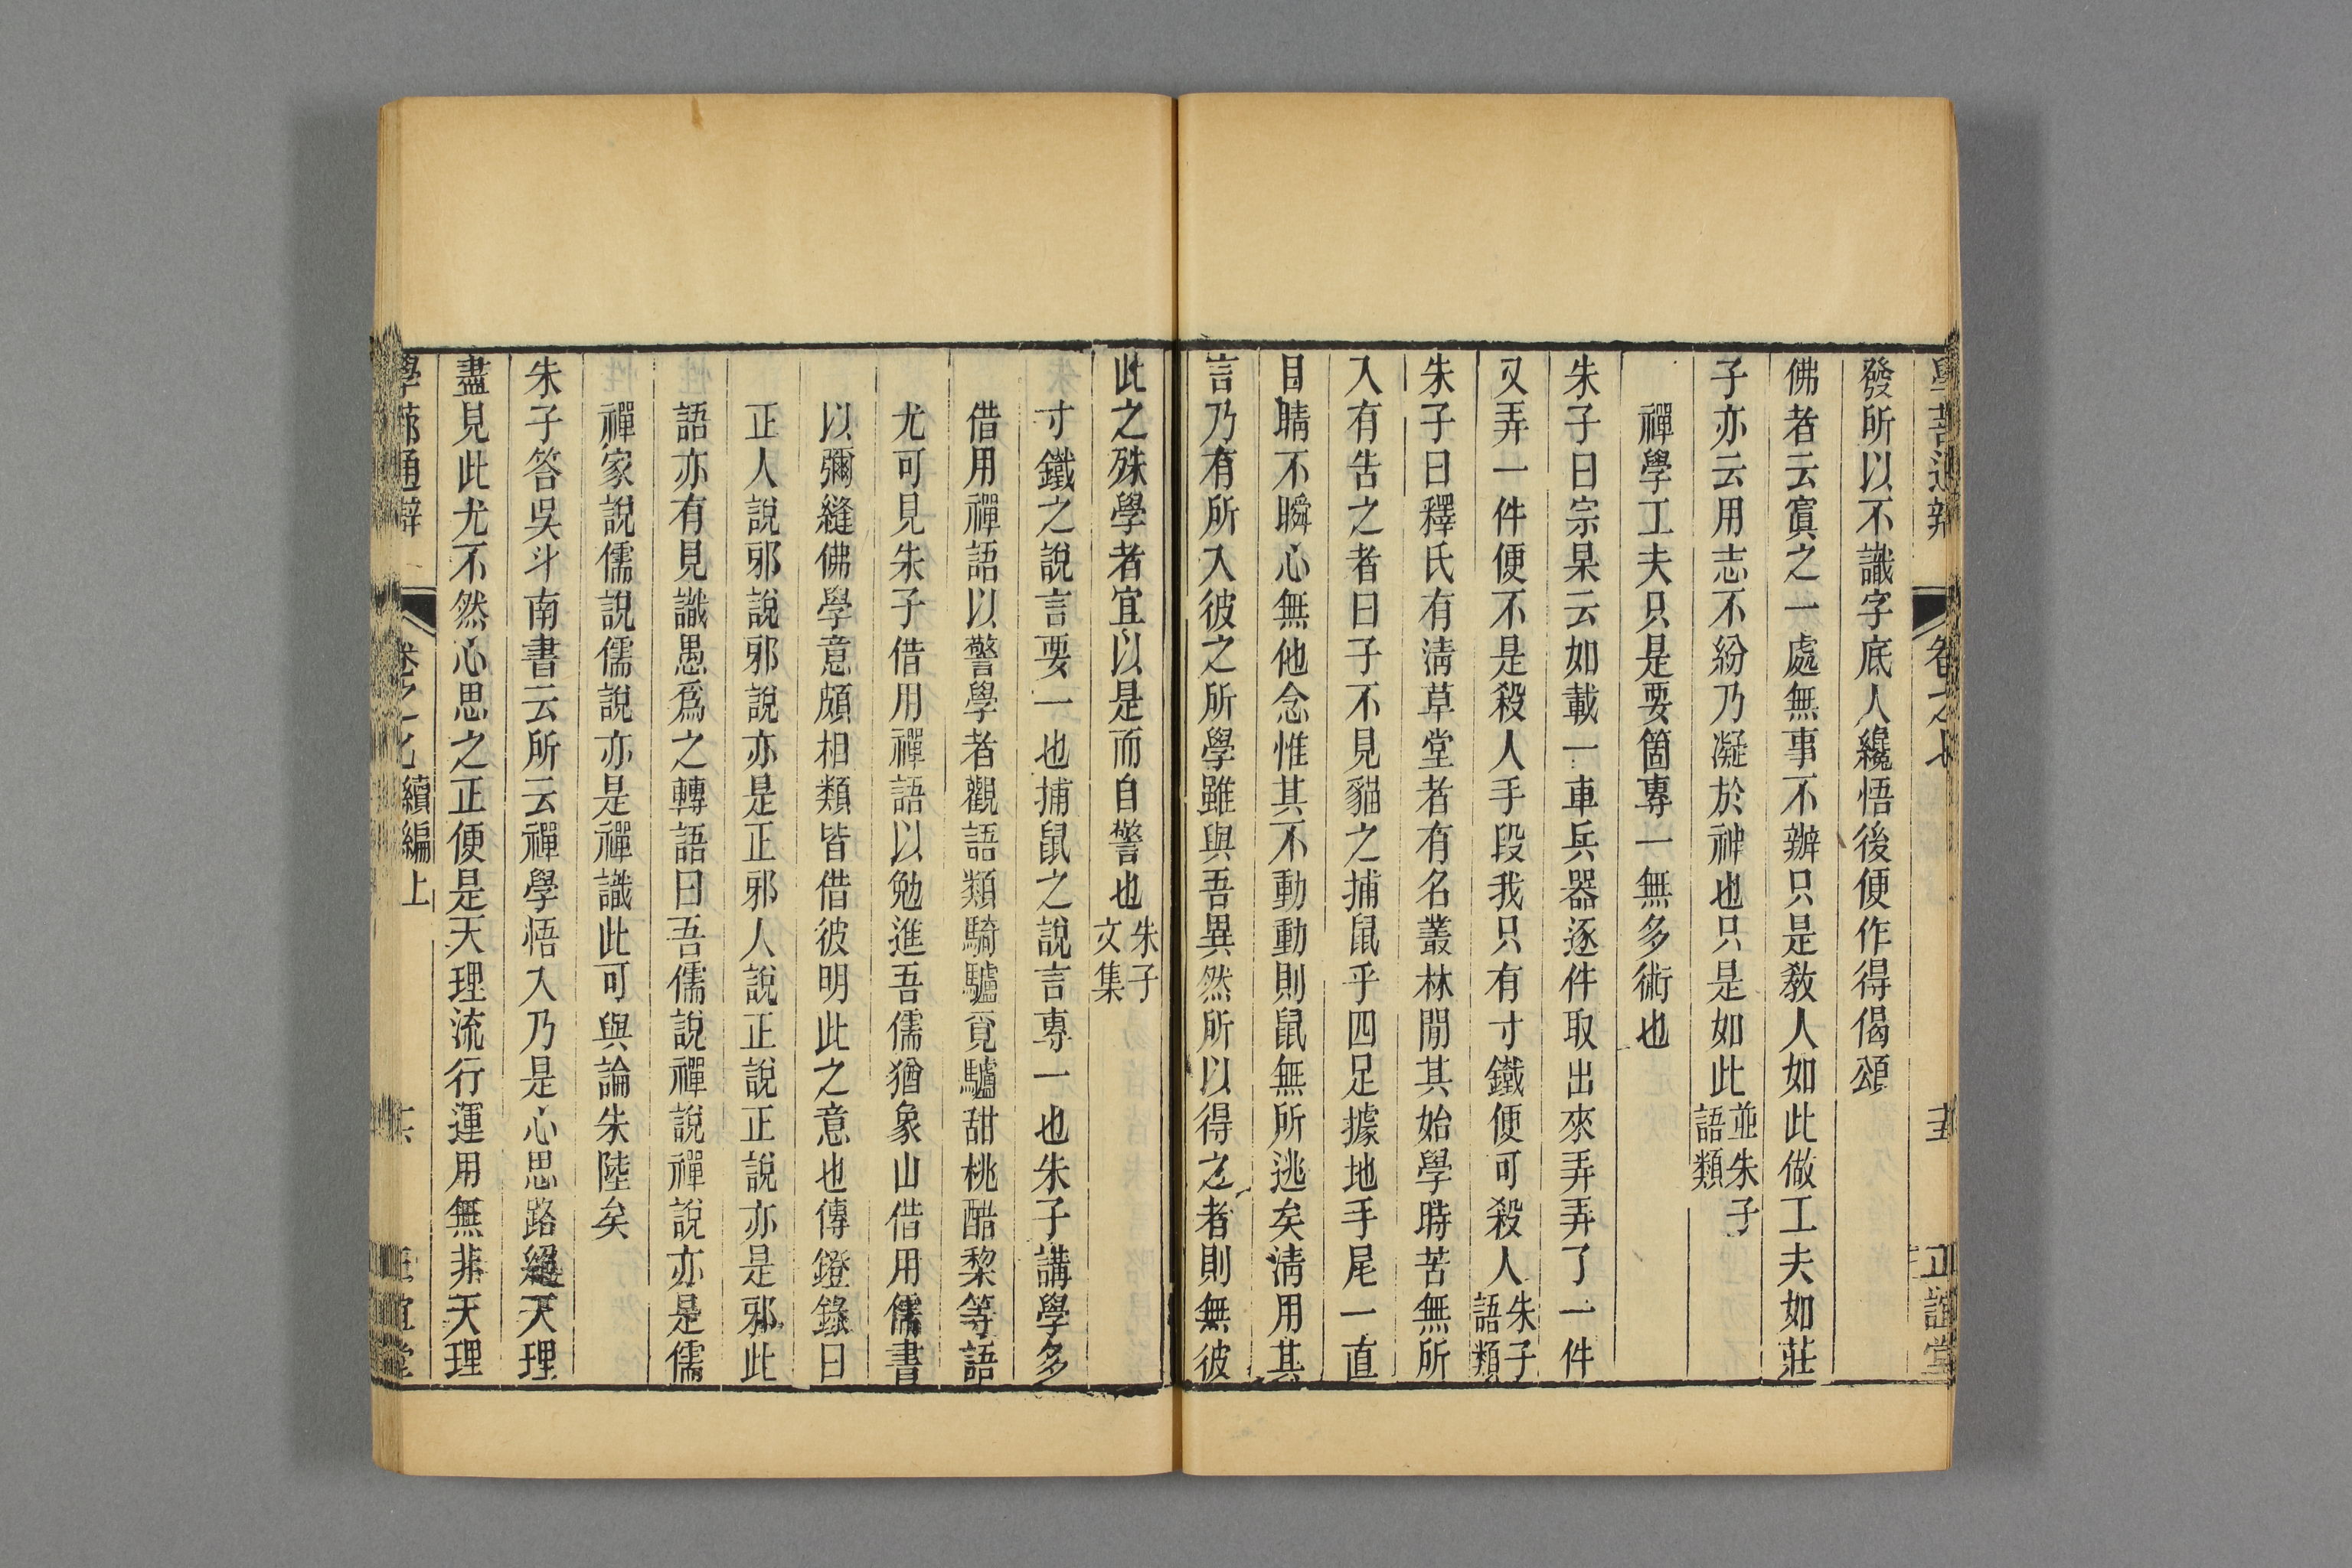 發所以不識字底人纔悟後便作得偈頌
佛者云寘之一處無事不辦只是教人如此做工夫如莊
子亦云用志不紛乃凝於神也只是如此並朱子語類
禪學工夫只是要箇專一無多術也
朱子曰宗杲云如載一車兵器逐件取出來弄弄了一件
又弄一件便不是殺人手段我只有寸鐵便可殺人朱子語類
朱子曰釋氏有清草堂者有名叢林閒其始學時苦無所
入有告之者曰子不見貓之捕鼠乎四足據地手尾一直
目睛不瞬心無他念惟其不動動則鼠無所逃矣清用其
言乃有所入彼之所學雖與吾異然所以得之者則無彼
此之殊學者宜以是而自警也朱子文集
寸鐵之說言要一也捕鼠之說言專一也朱子講學多
借用禪語以警學者觀語類騎驢覓驢甜桃醋棃等語
尤可見朱子借用禪語以勉進吾儒猶象山借用儒書
以彌縫佛學意頗相類皆借彼明此之意也傳鐙錄曰
正人說邪說邪說亦是正邪人說正說正說亦是邪此
語亦有見識愚爲之轉語曰吾儒說禪說禪說亦是儒
禪家說儒說儒說亦是禪識此可與論朱陸矣
朱子答吳斗南書云所云禪學悟入乃是心思路絕天理
盡見此尤不然心思之正便是天理流行運用無非天理
學蔀通辯 卷之七 續編上